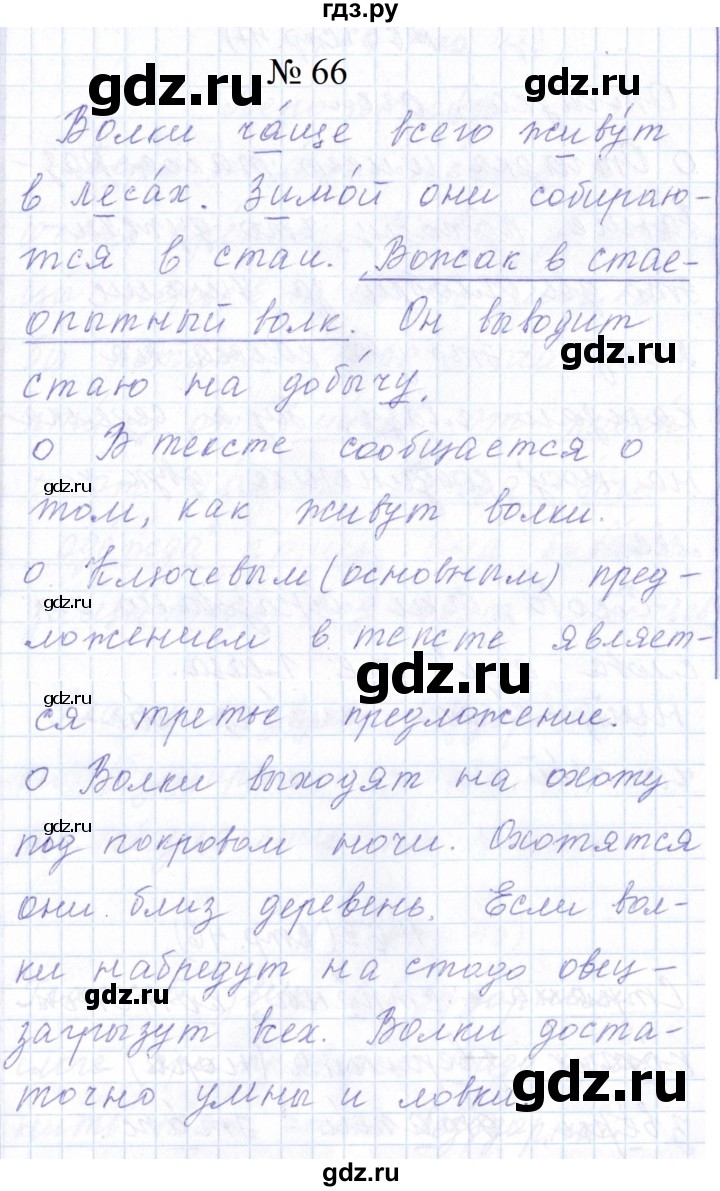 гдз.ру
№ 66
gdz.ru gdz.ru
Волки ча́ще всего живу́т
в леса́х. Зимо́й они собираю-
gdz.ru
тся в стаи. Вожак в стае-
опытный волк. Он выводит
gdz.ru
стаю на добы́чу.
о В тексте сообщается о
gdz.ru
том, как живут волки.
о. Ключевым (основным) пред-
gdz.ru
ложением в тексте являет-
gdz.ru
ся третье предложение.
о Волки выходят на охоту
gdz.ru
под покровом ночи. Охотятся
они близ деревень. Если вол-
ки набредут на стадо овец-
gdz.ru
загрызут всех. Волки доста-
точно умны и ловки
gdz.ru
gdz.ru